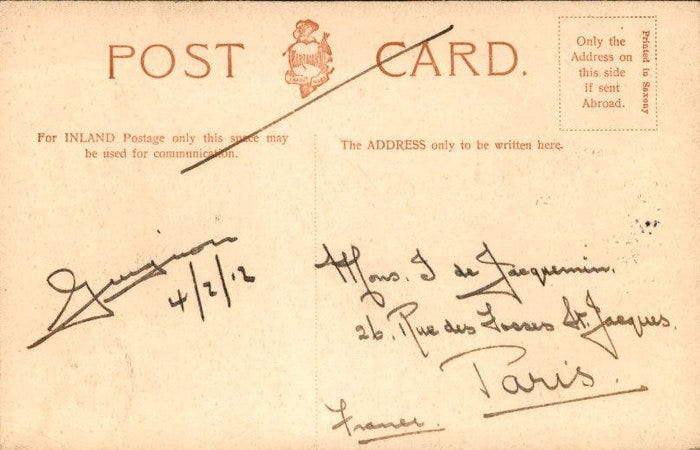 POST CARD.
Only the
Address on
this side
if sent
Abroad.
Printed in Saxony
For INLAND Postage only this space may
be used for communication.
The ADDRESS only to be written here.
4/2/12
Mons. J de Jacquemin.
26. Rue des Fosses St. Jacques.
Paris.
France.